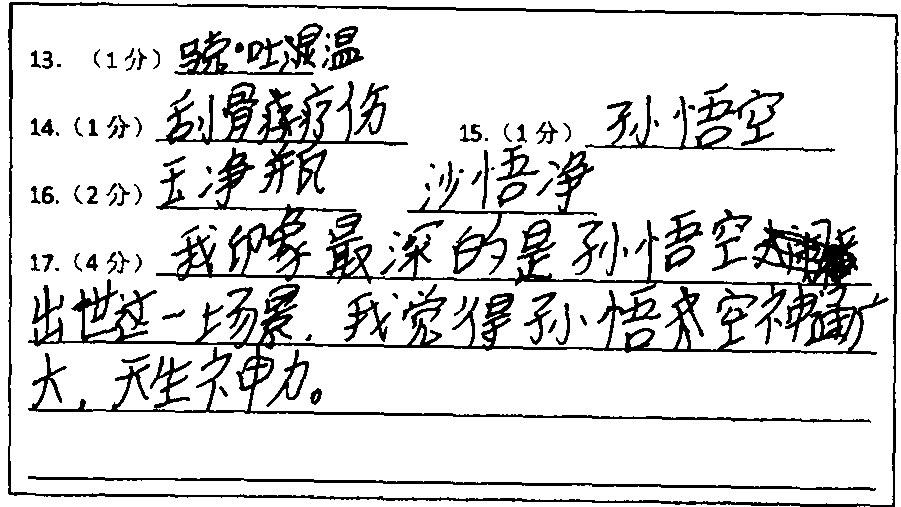 13. （1分）骁·吐浞温
14.（1分）刮骨疗伤 15.（1分）孙悟空
16.（2分）玉净瓶 沙悟净
17.（4分）我印象最深的是孙悟空
出世这一场景，我觉得孙悟空神通广
大，天生神力。